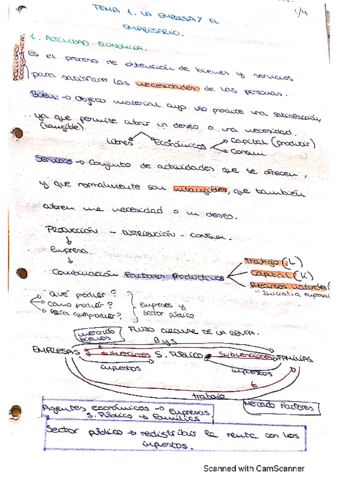 TEMA 1. LA EMPRESA Y EL
EMPRESARIO.
1/4
1. ACTIVIDAD ECONOMICA.
Es el proceso de obtención de bienes y servicios
para satisfacer las necesidades de las personas.
Bienes → Objeto material cuyo uso produce una satisfacción,
ya que permite cubrir un deseo o una necesidad.
(tangible)
Libres
Económicos
Capital (producir)
Consumo
Servicios → Conjunto de actividades que se ofrecen,
y que normalmente son intangibles, que también
cubren una necesidad o un deseo.
PRODUCCIÓN - DISTRIBUCIÓN - CONSUMO
Empresa
Combinación Factores Productivos
Trabajo (L)
Capital (K)
Recursos naturales
¿Qué producir?
¿Cómo producir?
¿Para quién producir?
Empresas y
Sector público
mercado
bienes
FLUJO CIRCULAR DE LA RENTA.
B y S
EMPRESAS subvenciones S. Público subvenciones FAMILIAS
impuestos
impuestos
trabajo
MERCADO FACTORES
Agentes económicos → Empresas
S. Público → Familias
Sector público → redistribuir la renta con los
impuestos.
Scanned with CamScanner